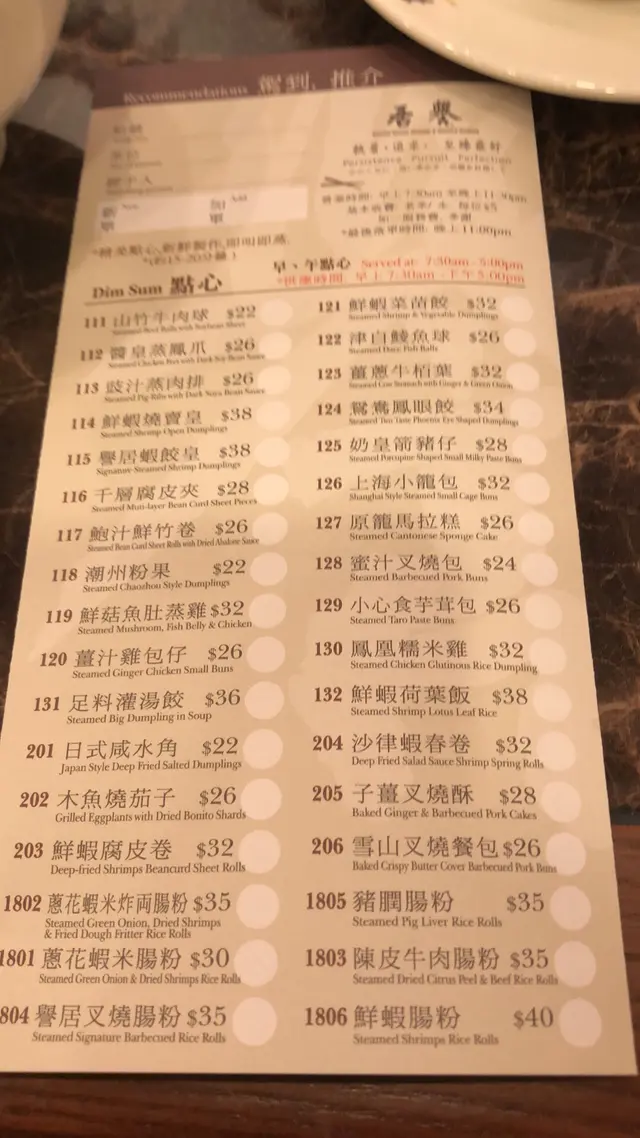 Recommendations 駕到, 推介
居譽
執著·追求·至臻最好
Persistence Pursuit Perfection
*最後落單時間: 晚上11:00pm
*精美點心,新鮮製作,即叫即蒸,
早、午點心 Served at: 7:30am - 5:00pm
*供應時間: 早上7:30am - 下午5:00pm
Dim Sum 點心
111 山竹牛肉球 $22
Steamed Beef Balls with Soybean Sheet
112 醬皇蒸鳳爪 $26
Steamed Chicken Feet with Dark Soy Bean Sauce
113 豉汁蒸肉排 $26
Steamed Pig Ribs with Dark Soya Bean Sauce
114 鮮蝦燒賣皇 $38
Steamed Shrimp Open Dumplings
115 譽居蝦餃皇 $38
Signature Steamed Shrimp Dumplings
116 千層腐皮夾 $28
Steamed Muti-layer Bean Curd Sheet Pieces
117 鮑汁鮮竹卷 $26
Steamed Bean Curd Sheet Rolls with Dried Abalone Sauce
118 潮州粉果 $22
Steamed Chaozhou Style Dumplings
119 鮮菇魚肚蒸雞 $32
Steamed Mushroom, Fish Belly & Chicken
120 薑汁雞包仔 $26
Steamed Ginger Chicken Small Buns
131 足料灌湯餃 $36
Steamed Big Dumpling in Soup
201 日式咸水角 $22
Japan Style Deep Fried Salted Dumplings
202 木魚燒茄子 $26
Grilled Eggplants with Dried Bonito Shards
203 鮮蝦腐皮卷 $32
Deep-fried Shrimps Beancurd Sheet Rolls
1802 蔥花蝦米炸両腸粉 $35
Steamed Green Onion, Dried Shrimps
& Fried Dough Fritter Rice Rolls
1801 蔥花蝦米腸粉 $30
Steamed Green Onion & Dried Shrimps Rice Rolls
804 譽居叉燒腸粉 $35
Steamed Signature Barbecued Rice Rolls
121 鮮蝦菜苗餃 $32
Steamed Shrimp & Vegetable Dumplings
122 津白鯪魚球 $26
Steamed Dace Fish Balls
123 薑蔥牛栢葉 $32
Steamed Cow Stomach with Ginger & Green Onion
124 鴛鴦鳳眼餃 $34
Steamed Two Taste Phoenix Eye Shaped Dumplings
125 奶皇箭豬仔 $28
Steamed Porcupine Shaped Small Milky Paste Buns
126 上海小籠包 $32
Shanghai Style Steamed Small Cage Buns
127 原籠馬拉糕 $26
Steamed Cantonese Sponge Cake
128 蜜汁叉燒包 $24
Steamed Barbecued Pork Buns
129 小心食芋茸包 $26
Steamed Taro Paste Buns
130 鳳凰糯米雞 $32
Steamed Chicken Glutinous Rice Dumpling
132 鮮蝦荷葉飯 $38
Steamed Shrimp Lotus Leaf Rice
204 沙律蝦春卷 $32
Deep Fried Salad Sauce Shrimp Spring Rolls
205 子薑叉燒酥 $28
Baked Ginger & Barbecued Pork Cakes
206 雪山叉燒餐包 $26
Baked Crispy Butter Cover Barbecued Pork Buns
1805 豬膶腸粉 $35
Steamed Pig Liver Rice Rolls
1803 陳皮牛肉腸粉 $35
Steamed Dried Citrus Peel & Beef Rice Rolls
1806 鮮蝦腸粉 $40
Steamed Shrimps Rice Rolls